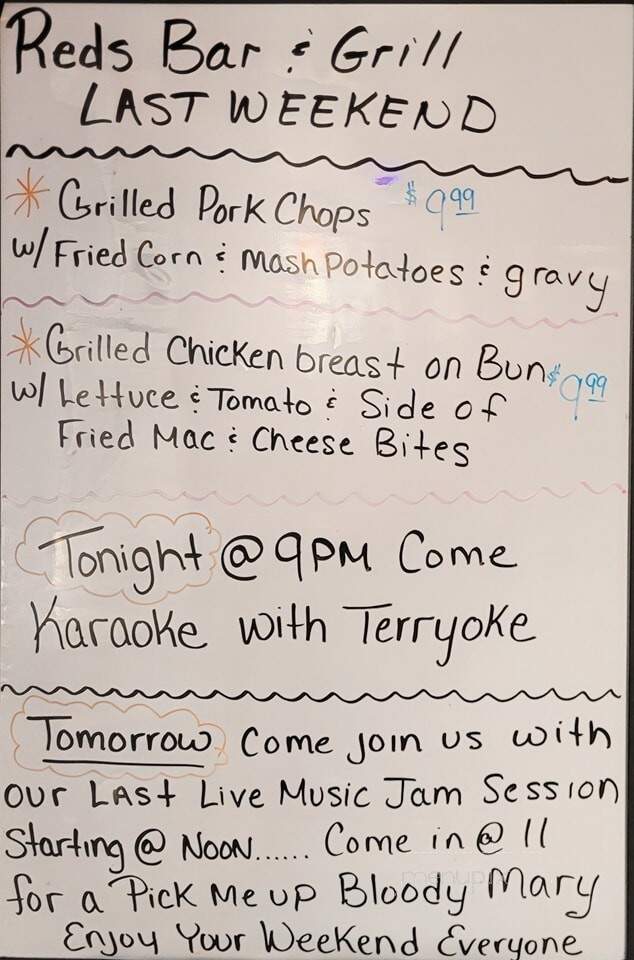 Reds Bar & Grill
LAST WEEKEND
* Grilled Pork Chops $9.99
w/ Fried Corn & Mash Potatoes & gravy
* Grilled Chicken breast on Bun $9.99
w/ Lettuce & Tomato & Side of
Fried Mac & Cheese Bites
Tonight @ 9PM Come
Karaoke with Terryoke
Tomorrow Come join us with
our Last Live Music Jam Session
Starting @ Noon...... Come in @ 11
for a Pick Me up Bloody Mary
Enjoy Your Weekend Everyone